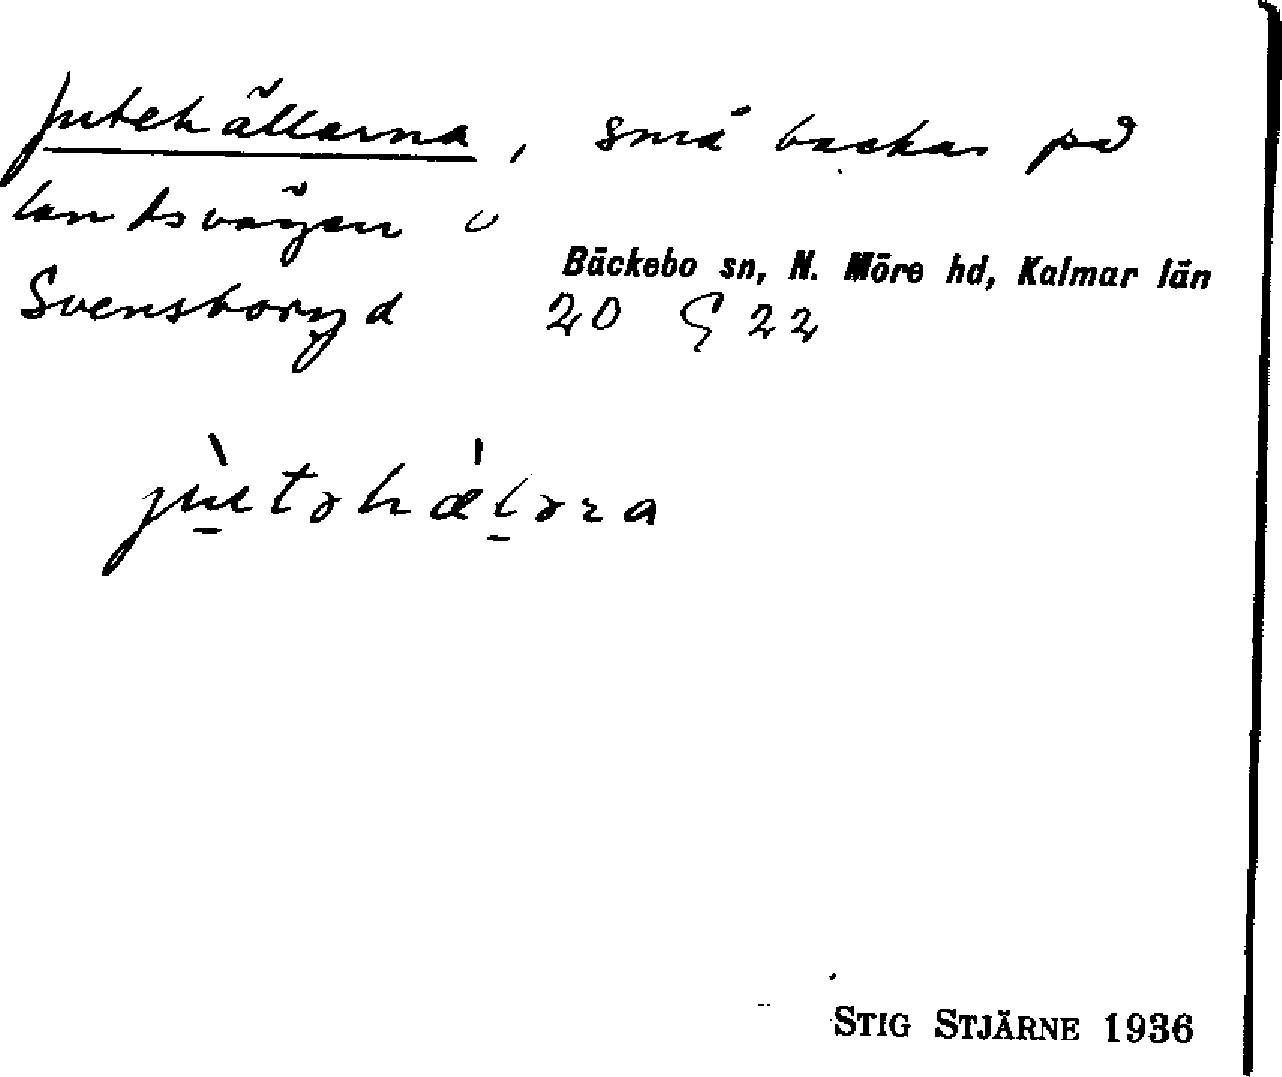 Jutehällarna, små backar på
landsvägen i
Bäckebo sn, N. Möre hd, Kalmar län
Svenskoryd 20 S 22
jùtəhǽləra
STIG STJÄRNE 1936